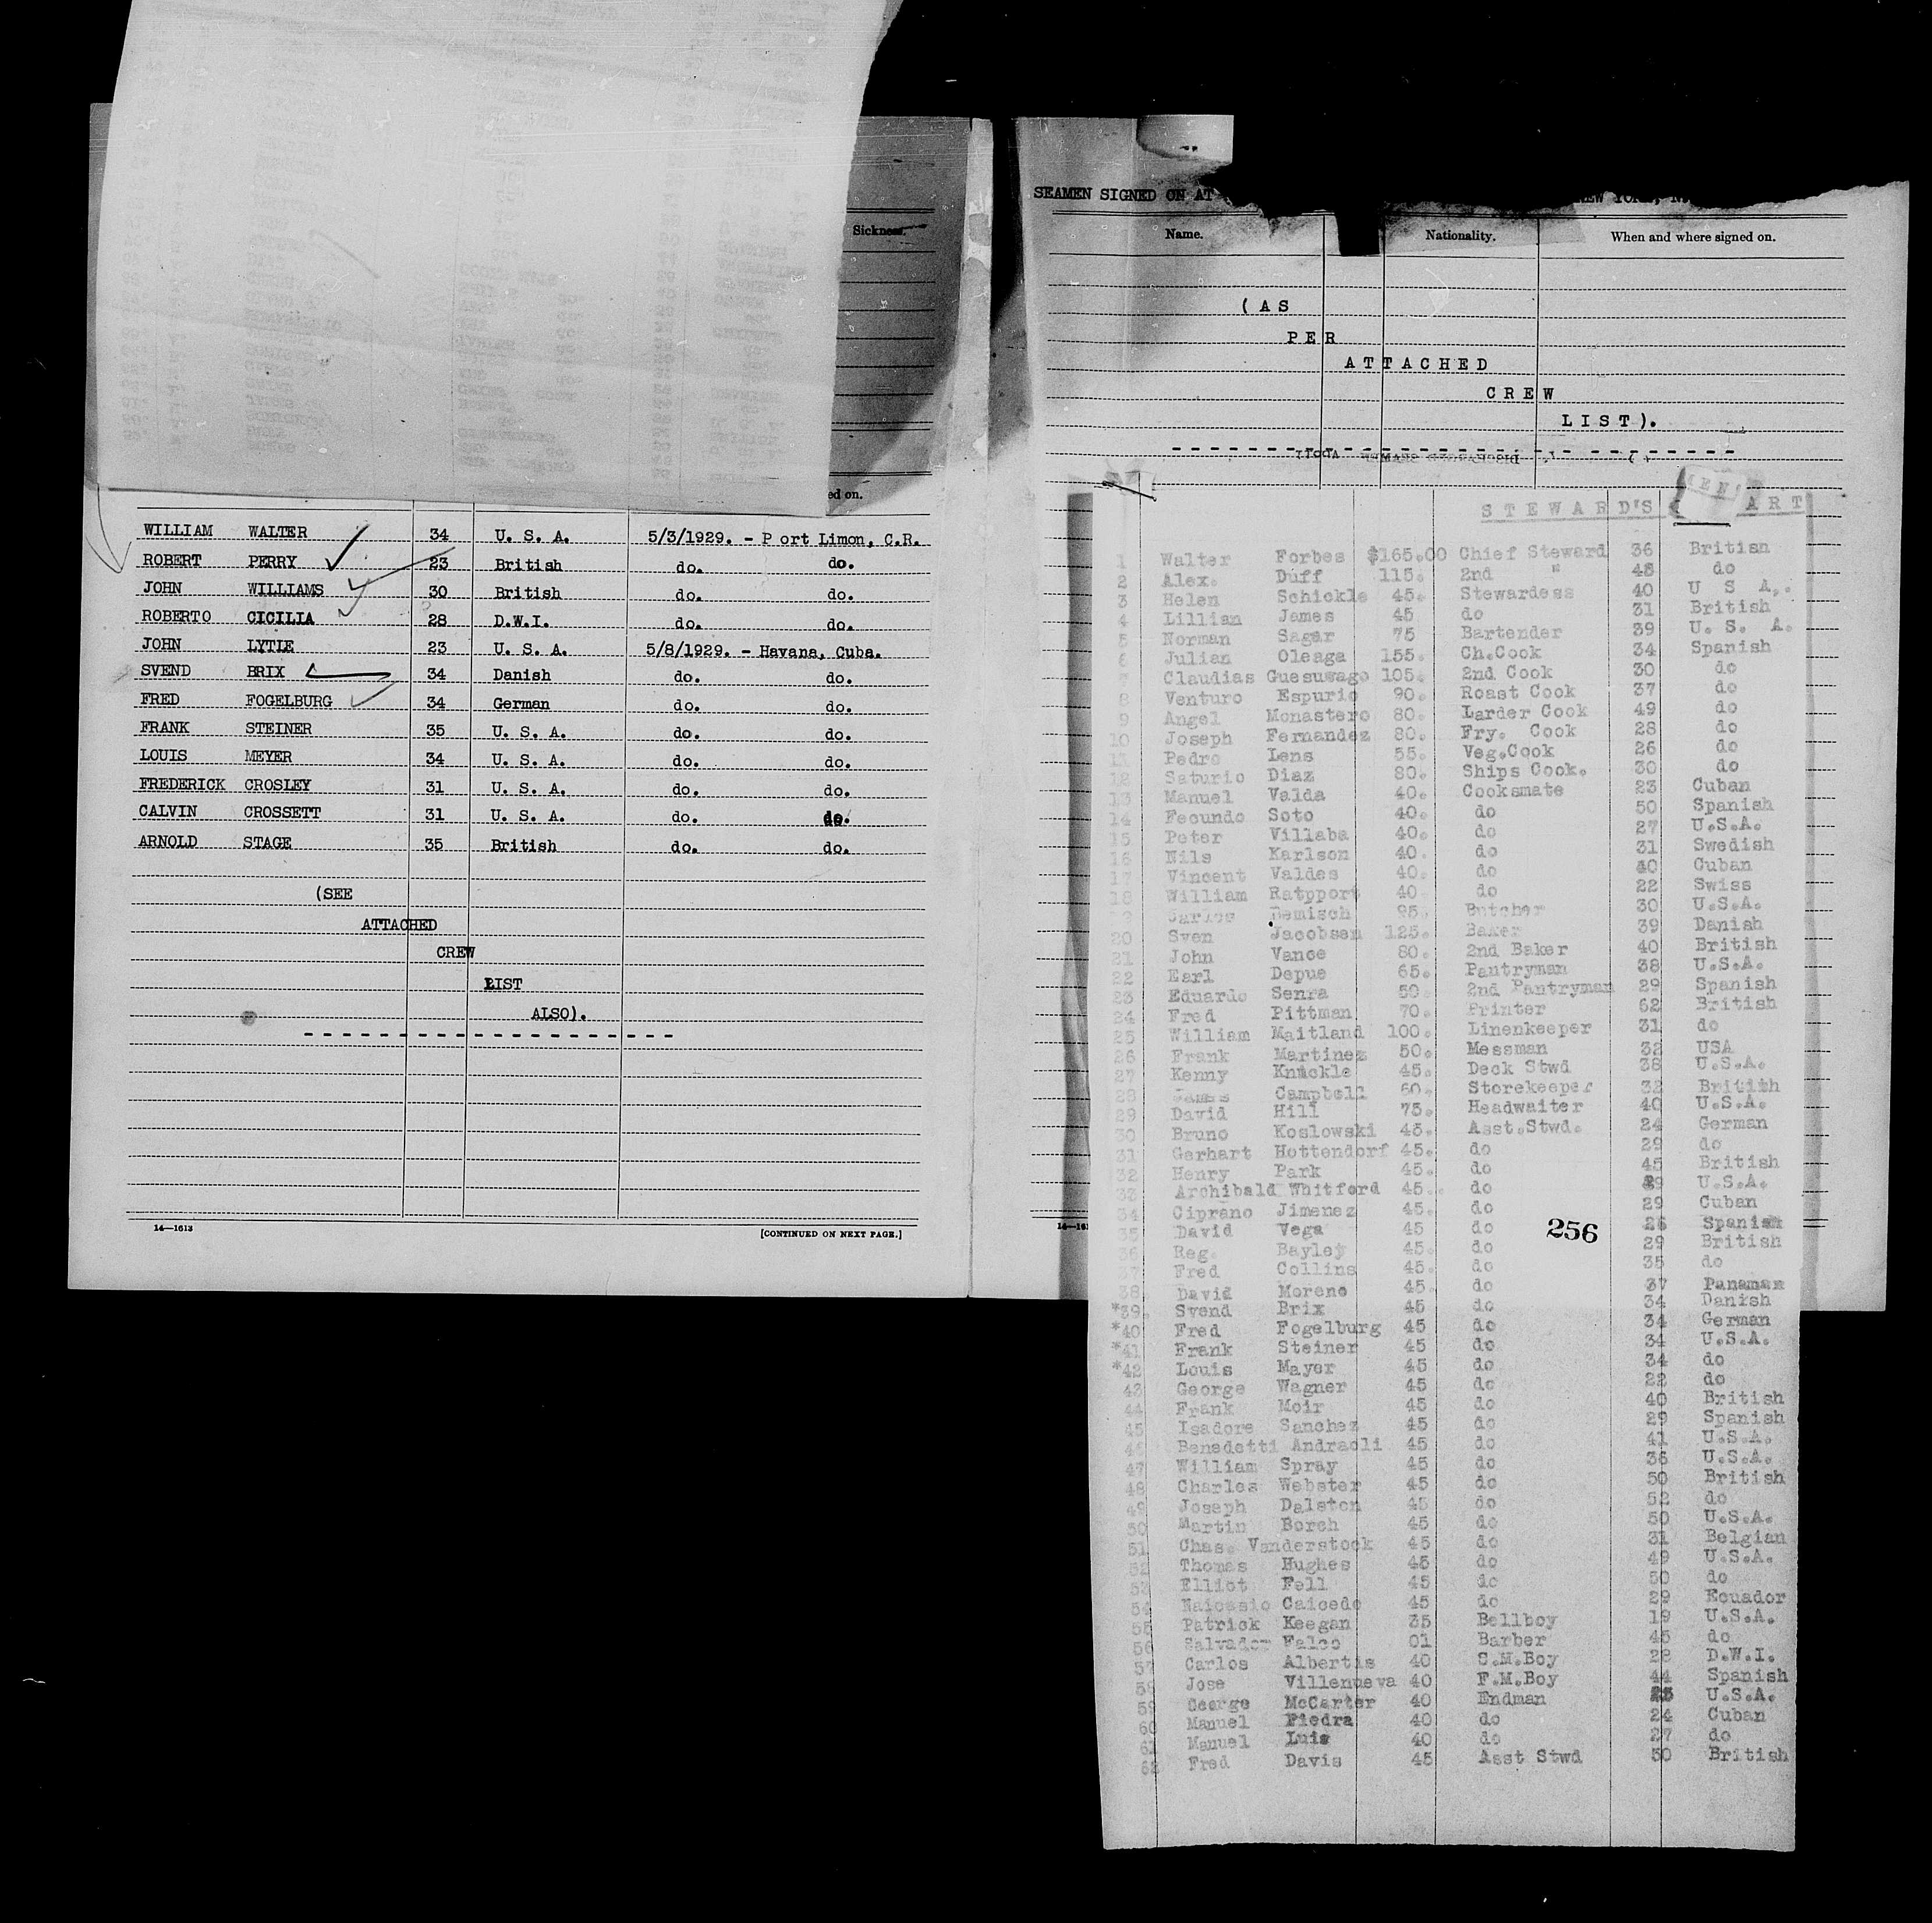 Sickness.
ed on.
WILLIAM WALTER 34 U. S. A. 5/3/1929. - Port Limon, C.R.
ROBERT PERRY 23 British do. do.
JOHN WILLIAMS 30 British do. do.
ROBERTO CICILIA 28 D.W.I. do. do.
JOHN LYTLE 23 U. S. A. 5/8/1929. - Havana, Cuba.
SVEND BRIX 34 Danish do. do.
FRED FOGELBURG 34 German do. do.
FRANK STEINER 35 U. S. A. do. do.
LOUIS MEYER 34 U. S. A. do. do.
FREDERICK CROSLEY 31 U. S. A. do. do.
CALVIN CROSSETT 31 U. S. A. do. do.
ARNOLD STAGE 35 British do. do.
(SEE
ATTACHED
CREW
LIST
ALSO).
14—1613
[CONTINUED ON NEXT PAGE.]
SEAMEN SIGNED ON AT NEW YORK, N.
Name. Nationality. When and where signed on.
(AS
PER
ATTACHED
CREW
LIST).
STEWARD'S ART
1 Walter Forbes $165.00 Chief Steward 36 British
2 Alex. Duff 115. 2nd " 45 do
3 Helen Schickle 45. Stewardess 40 U S A.
4 Lillian James 45 do 31 British
5 Norman Sager 75 Bartender 39 U. S. A.
6 Julian Oleaga 155. Ch.Cook 34 Spanish
7 Claudias Guesusago 105. 2nd Cook 30 do
8 Venturo Espurio 90. Roast Cook 37 do
9 Angel Monastero 80. Larder Cook 49 do
10 Joseph Fernandez 80. Fry. Cook 28 do
11 Pedro Lens 55. Veg.Cook 26 do
12 Saturio Diaz 80. Ships Cook. 30 do
13 Manuel Valda 40. Cooksmate 23 Cuban
14 Fecundo Soto 40. do 50 Spanish
15 Peter Villaba 40. do 27 U.S.A.
16 Nils Karlson 40. do 31 Swedish
17 Vincent Valdes 40. do 40 Cuban
18 William Ratpport 40 do 22 Swiss
Carlos Bemisch 95. Butcher 30 U.S.A.
20 Sven Jacobsen 125. Baker 39 Danish
21 John Vance 80. 2nd Baker 40 British
22 Earl Depue 65. Pantryman 38 U.S.A.
23 Eduardo Senra 50. 2nd Pantryman 29 Spanish
24 Fred Pittman 70. Printer 62 British
25 William Maitland 100. Linenkeeper 31 do
26 Frank Martinez 50. Messman 32 USA
27 Kenny Knuckle 45. Deck Stwd 38 U.S.A.
28 James Campbell 60. Storekeeper 32 British
29 David Hill 75. Headwaiter 40 U.S.A.
30 Bruno Koslowski 45. Asst.Stwd. 24 German
31 Gerhart Hottendorf 45. do 29 do
32 Henry Park 45. do 45 British
33 Archibald Whitford 45. do U.S.A.
34 Ciprano Jimenez 45. do 29 Cuban
35 David Vega 45 do 26 Spanish
36 Reg. Bayley 45. do 29 British
37 Fred Collins 45. do 35 do
38 David Moreno 45. do 37 Panaman
*39. Svend Brix 45 do 34 Danish
*40 Fred Fogelburg 45 do 34 German
*41 Frank Steiner 45 do 34 U.S.A.
*42 Louis Mayer 45 do 34 do
43 George Wagner 45 do 22 do
44 Frank Moir 45 do 40 British
45 Isadore Sanchez 45 do 29 Spanish
46 Benedetti Andraoli 45 do 41 U.S.A.
47 William Spray 45 do 36 U.S.A.
48 Charles Webster 45 do 50 British
49 Joseph Dalston 45 do 52 do
50 Martin Borch 45 do 50 U.S.A.
51 Chas. Vanderstock 45 do 31 Belgian
52 Thomas Hughes 45 do 49 U.S.A.
53 Elliot Fell 45 do 50 do
54 Naicasio Caicedo 45 do 29 Ecuador
55 Patrick Keegan 35 Bellboy 19 U.S.A.
56 Salvador Falco 01 Barber 45 do
57 Carlos Albertis 40 S.M.Boy 28 D.W.I.
58 Jose Villenueva 40 F.M.Boy 44 Spanish
59 George McCarter 40 Endman U.S.A.
60 Manuel Piedra 40 do 24 Cuban
61 Manuel Luis 40 do 27 do
62 Fred Davis 45 Asst Stwd 50 British
256